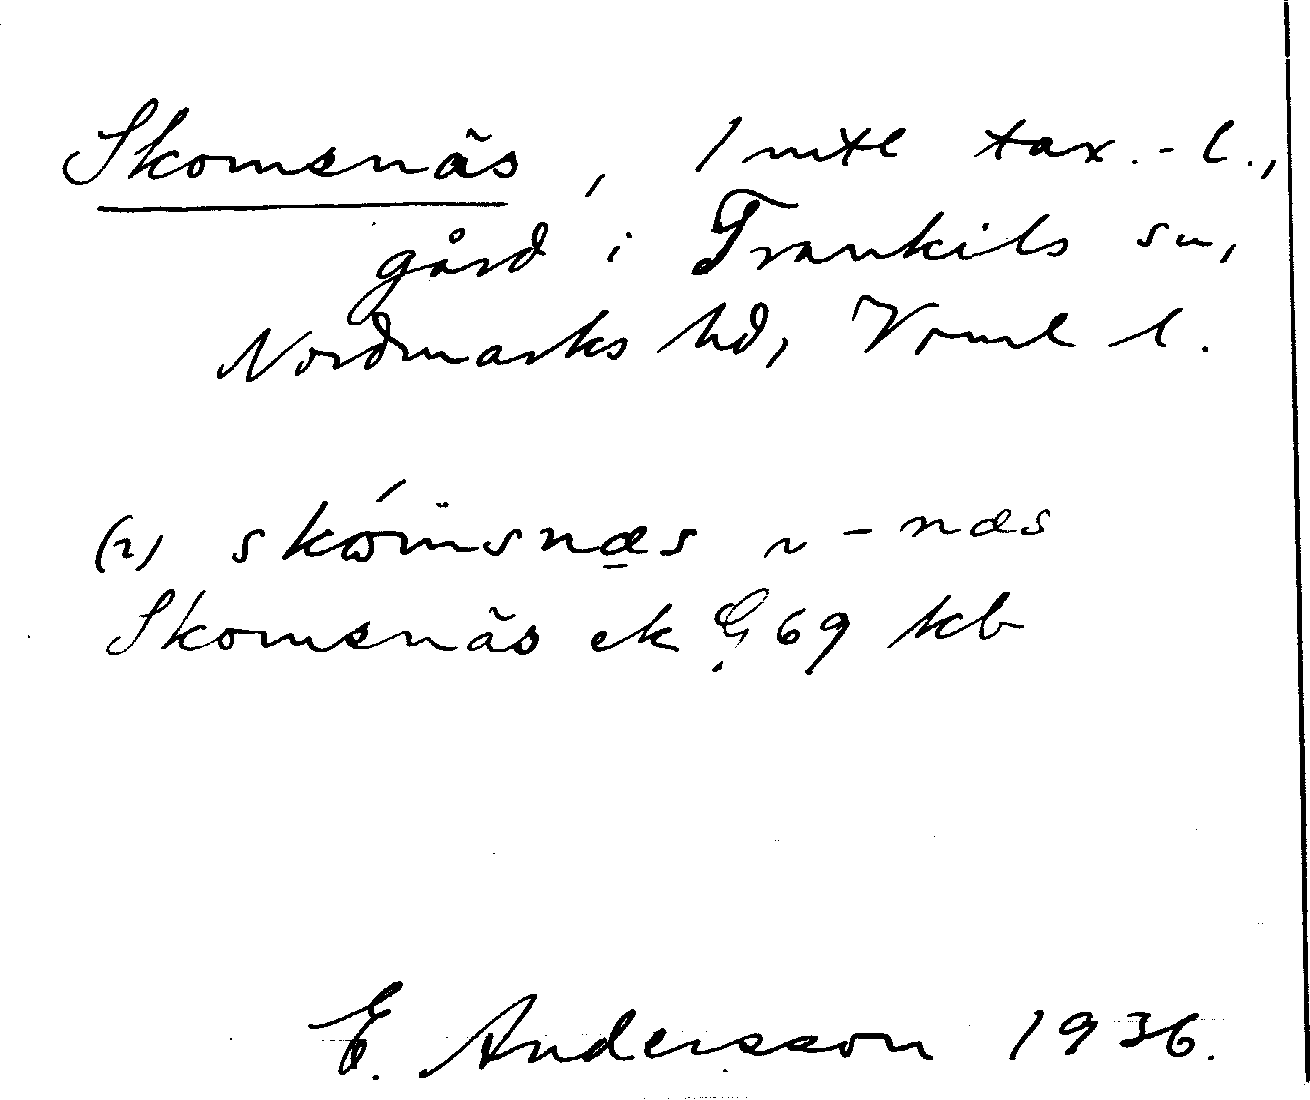 Skomsnäs, 1 mtl tax.-l.,
gård i Trankils sn,
Nordmarks hd, Vrml l.
(2) skómsnæs ~ -næs
Skomsnäs ek G 69 kb
E. Andersson 1936.